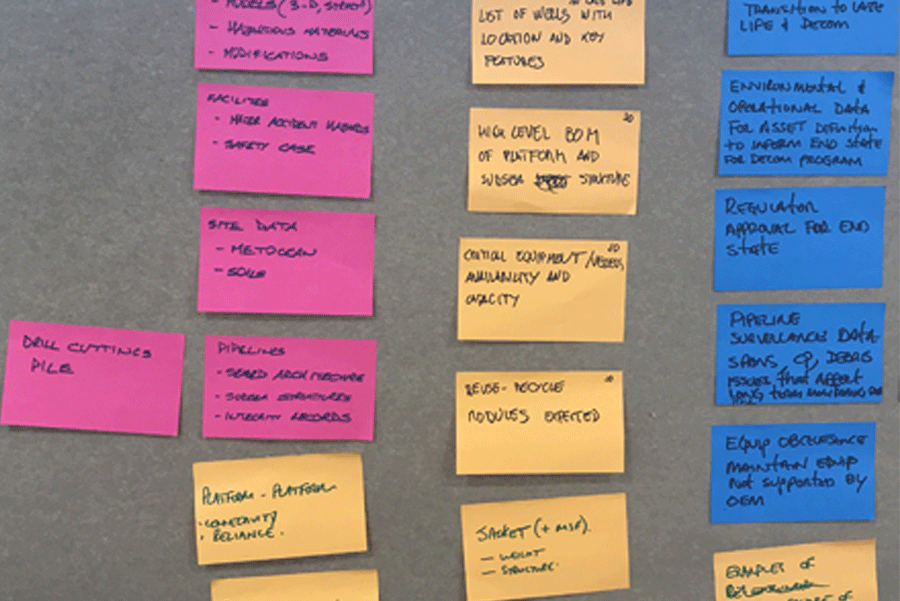 MODELS (3-D,
- HAZARDOUS MATERIALS
- MODIFICATIONS
FACILITIES
- MAJOR ACCIDENT HAZARDS
- SAFETY CASE
SITE DATA
- METOCEAN
- SOILS
DRILL CUTTINGS
PILE
PIPELINES
- SEABED ARCHITECTURE
- SUBSEA STRUCTURES
- INTEGRITY RECORDS
PLATFORM - PLATFORM
- CONNECTIVITY
- RELIANCE.
LIST OF WELLS WITH
LOCATION AND KEY
FEATURES
HIGH LEVEL BOM
OF PLATFORM AND
SUBSEA STRUCTURE
CRITICAL EQUIPMENT/VESSEL
AVAILABILITY AND
CAPACITY
REUSE - RECYCLE
MODULES EXPECTED
JACKET (+ MSF).
- WEIGHT
- STRUCTURE.
TRANSITION TO LATE
LIFE & DECOM
ENVIRONMENTAL &
OPERATIONAL DATA
FOR ASSET DEFINITION
to INFORM END STATE
FOR DECOM PROGRAM
REGULATOR
APPROVAL FOR END
STATE
PIPELINE
SURVEILLANCE DATA -
SPANS, CP, DEBRIS
ISSUES that AFFECT
LONG TERM MONITORING
EQUIP OBSOLESENCE
MAINTAIN EQUIP
Not SUPPORTED BY
OEM
EXAMPLES OF
OF